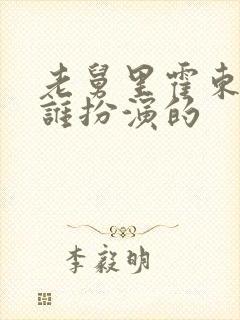 老舅里霍东
谁扮演的
李毅明